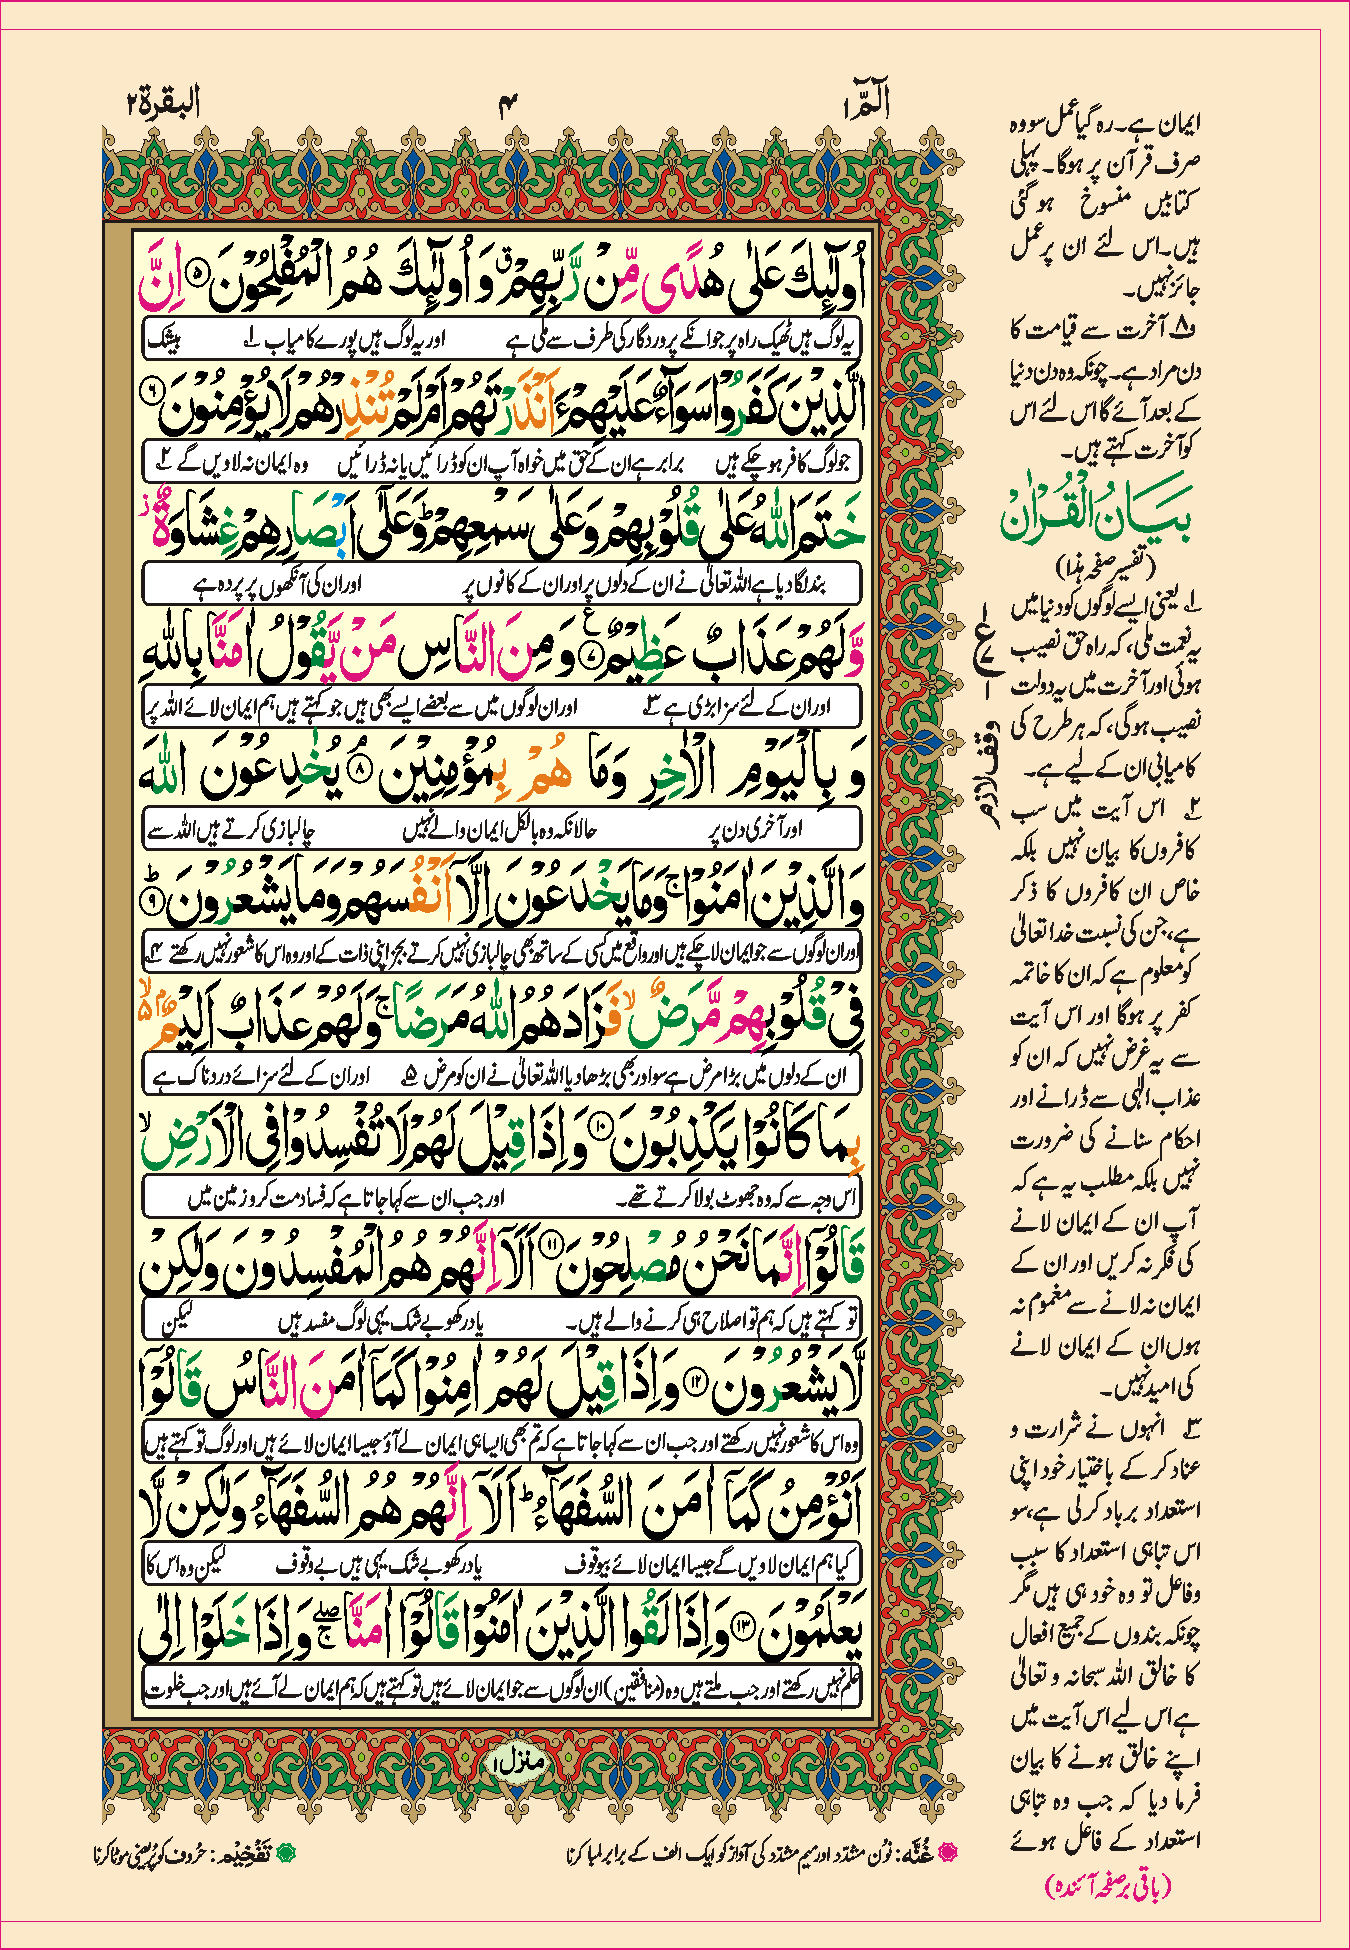 الٓمّٓ ۱
۴
البقرۃ ۲
اُولٰٓئِكَ عَلٰى هُدًى مِّنْ رَّبِّهِمْ ۗ وَ اُولٰٓئِكَ هُمُ الْمُفْلِحُوْنَ ۵ اِنَّ
یہ لوگ ہیں ٹھیک راہ پر جو انکے پروردگار کی طرف سے ملی ہے اور یہ لوگ ہیں پورے کامیاب ۱ بیشک
الَّذِيْنَ كَفَرُوْا سَوَآءٌ عَلَيْهِمْ ءَاَنْذَرْتَهُمْ اَمْ لَمْ تُنْذِرْهُمْ لَا يُؤْمِنُوْنَ ۶
جو لوگ کافر ہو چکے ہیں برابر ہے ان کے حق میں خواہ آپ ان کو ڈرائیں یا نہ ڈرائیں وہ ایمان نہ لاویں گے ۲
خَتَمَ اللّٰهُ عَلٰى قُلُوْبِهِمْ وَعَلٰى سَمْعِهِمْ ؕ وَعَلٰٓى اَبْصَارِهِمْ غِشَاوَةٌ ز
بند لگا دیا ہے اللہ تعالیٰ نے ان کے دلوں پر اور ان کے کانوں پر اور ان کی آنکھوں پر پردہ ہے
وَّلَهُمْ عَذَابٌ عَظِيْمٌ ۷ ع وَ مِنَ النَّاسِ مَنْ يَّقُوْلُ اٰمَنَّا بِاللّٰهِ
اور ان کے لئے سزا بڑی ہے ۳ اور ان لوگوں میں سے بعضے ایسے بھی ہیں جو کہتے ہیں ہم ایمان لائے اللہ پر
وَ بِالْيَوْمِ الْاٰخِرِ وَمَا هُمْ بِمُؤْمِنِيْنَ ۘ ۸ يُخٰدِعُوْنَ اللّٰهَ
اور آخری دن پر حالانکہ وہ بالکل ایمان والے نہیں چالبازی کرتے ہیں اللہ سے
وَ الَّذِيْنَ اٰمَنُوْا ۚ وَمَا يَخْدَعُوْنَ اِلَّآ اَنْفُسَهُمْ وَمَا يَشْعُرُوْنَ ؕ ۹
اور ان لوگوں سے جو ایمان لا چکے ہیں اور واقع میں کسی کے ساتھ بھی چالبازی نہیں کرتے بجز اپنی ذات کے اور وہ اس کا شعور نہیں رکھتے ۴
فِيْ قُلُوْبِهِمْ مَّرَضٌ ۙ فَزَادَهُمُ اللّٰهُ مَرَضًا ۚ وَلَهُمْ عَذَابٌ اَلِيْمٌۢ ۙ۵
ان کے دلوں میں بڑا مرض ہے سو اور بھی بڑھا دیا اللہ تعالیٰ نے ان کو مرض ۵ اور ان کے لئے سزائے دردناک ہے
بِمَا كَانُوْا يَكْذِبُوْنَ ۱۰ وَ اِذَا قِيْلَ لَهُمْ لَا تُفْسِدُوْا فِي الْاَرْضِ ۙ
اس وجہ سے کہ وہ جھوٹ بولا کرتے تھے۔ اور جب ان سے کہا جاتا ہے کہ فساد مت کرو زمین میں
قَالُوْٓا اِنَّمَا نَحْنُ مُصْلِحُوْنَ ۱۱ اَلَآ اِنَّهُمْ هُمُ الْمُفْسِدُوْنَ وَلٰكِنْ
تو کہتے ہیں کہ ہم تو اصلاح ہی کرنے والے ہیں۔ یاد رکھو بے شک یہی لوگ مفسد ہیں لیکن
لَّا يَشْعُرُوْنَ ۱۲ وَ اِذَا قِيْلَ لَهُمْ اٰمِنُوْا كَمَآ اٰمَنَ النَّاسُ قَالُوْٓا
وہ اس کا شعور نہیں رکھتے اور جب ان سے کہا جاتا ہے کہ تم بھی ایسا ہی ایمان لے آؤ جیسا ایمان لائے ہیں اور لوگ تو کہتے ہیں
اَنُؤْمِنُ كَمَآ اٰمَنَ السُّفَهَآءُ ؕ اَلَآ اِنَّهُمْ هُمُ السُّفَهَآءُ وَلٰكِنْ لَّا
کیا ہم ایمان لاویں گے جیسا ایمان لائے بیوقوف یاد رکھو بے شک یہی ہیں بے وقوف لیکن وہ اس کا
يَعْلَمُوْنَ ۱۳ وَ اِذَا لَقُوا الَّذِيْنَ اٰمَنُوْا قَالُوْٓا اٰمَنَّا ۖ ۚ وَ اِذَا خَلَوْا اِلٰى
علم نہیں رکھتے اور جب ملتے ہیں وہ (منافقین) ان لوگوں سے جو ایمان لائے ہیں تو کہتے ہیں کہ ہم ایمان لے آئے ہیں اور جب خلوت
منزل ۱
۱
ع
۷
۱
وقف لازم
ایمان ہے۔ رہ گیا عمل سو وہ
صرف قرآن پر ہوگا۔ پہلی
کتابیں منسوخ ہو گئی
ہیں۔ اس لئے ان پر عمل
جائز نہیں۔
ف۸ آخرت سے قیامت کا
دن مراد ہے۔ چونکہ وہ دن دنیا
کے بعد آئے گا اس لئے اس
کو آخرت کہتے ہیں۔
بَيَانُ الْقُرْاٰنْ
(تفسیر صفحہ ہذا)
۱ یعنی ایسے لوگوں کو دنیا میں
یہ نعمت ملی، کہ راہ حق نصیب
ہوئی اور آخرت میں یہ دولت
نصیب ہوگی، کہ ہر طرح کی
کامیابی ان کے لیے ہے۔
۲ اس آیت میں سب
کافروں کا بیان نہیں بلکہ
خاص ان کافروں کا ذکر
ہے، جن کی نسبت خدا تعالیٰ
کو معلوم ہے کہ ان کا خاتمہ
کفر پر ہوگا اور اس آیت
سے یہ غرض نہیں کہ ان کو
عذاب الٰہی سے ڈرانے اور
احکام سنانے کی ضرورت
نہیں بلکہ مطلب یہ ہے کہ
آپ ان کے ایمان لانے
کی فکر نہ کریں اور ان کے
ایمان نہ لانے سے مغموم نہ
ہوں ان کے ایمان لانے
کی امید نہیں۔
۳ انہوں نے شرارت و
عناد کر کے باختیار خود اپنی
استعداد برباد کر لی ہے، سو
اس تباہی استعداد کا سبب
و فاعل تو وہ خود ہی ہیں مگر
چونکہ بندوں کے جمیع افعال
کا خالق اللہ سبحانہ و تعالیٰ
ہے اس لیے اس آیت میں
اپنے خالق ہونے کا بیان
فرما دیا کہ جب وہ تباہی
استعداد کے فاعل ہوئے
(باقی بر صفحہ آئندہ)
غُنَّه: نُون مشدّد اور میم مشدّد کی آواز کو ایک الف کے برابر لمبا کرنا
تَفْخِيْم: حُروف کو پُر یعنی موٹا کرنا